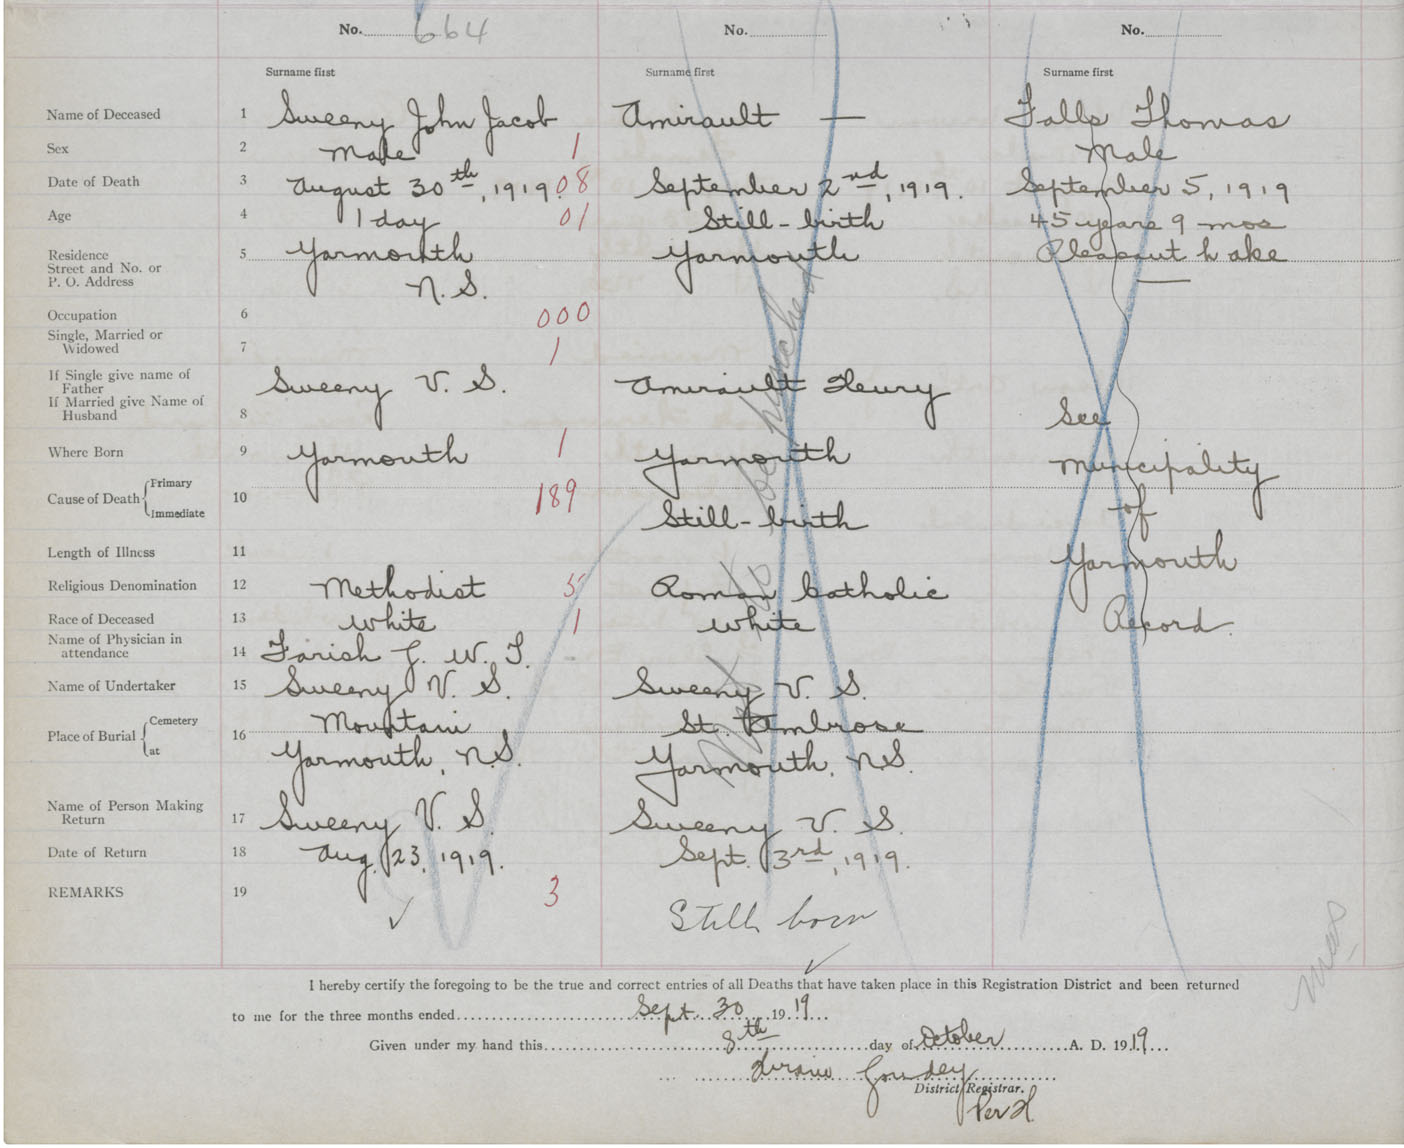 No. 664 No. No.
Surname first Surname first Surname first
Name of Deceased 1 Sweeny John Jacob Amirault — Falls Thomas
Sex 2 Male 1 Male
Date of Death 3 August 30th, 1919. 08 September 2nd, 1919. September 5, 1919
Age 4 1 day 01 Still-birth 45 years 9 mos
Residence
Street and No. or 5 Yarmouth Yarmouth Pleasant Lake
P. O. Address N.S. —
Occupation 6 000
Single, Married or
Widowed 7 1
If Single give name of
Father Sweeny V. S. Amirault Henry
If Married give Name of
Husband 8 See
Where Born 9 Yarmouth 1 Yarmouth Municipality
Cause of Death Primary
Immediate 10 189 Still-birth of
Length of Illness 11 Yarmouth
Religious Denomination 12 Methodist 5 Roman Catholic
Race of Deceased 13 White 1 White Record.
Name of Physician in
attendance 14 Farish G. W. T.
Name of Undertaker 15 Sweeny V. S. Sweeny V. S.
Place of Burial Cemetery 16 Mountain St. Ambrose
at Yarmouth, N.S. Yarmouth, N.S.
Name of Person Making
Return 17 Sweeny V. S. Sweeny V. S.
Date of Return 18 Aug. 23, 1919. Sept. 3rd, 1919.
REMARKS 19 3 Still born
Not to be punched
I hereby certify the foregoing to be the true and correct entries of all Deaths that have taken place in this Registration District and been returned
to me for the three months ended Sept. 30 1919
Given under my hand this 8th day of October A. D. 1919
Hiram Goudey
District Registrar.
Per H.